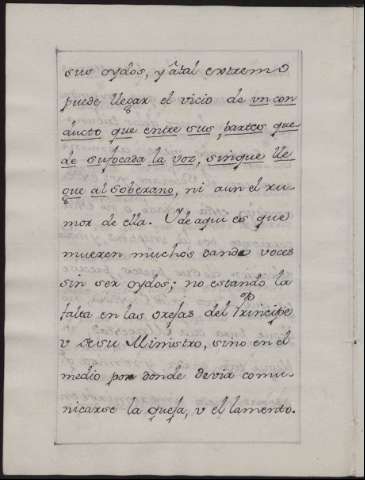 sus oydos, y âtal extremo
puede llegar el vicio de vn con
ducto que entre sus partes que
de sufocada la voz, sinque lle
gue al soberano, ni aun el ru-
mor de ella. Vde aqui es que
mueren muchos dando voces
sin ser oydos; no estando la
falta en las orejas del Principe
v desu Ministro, sino en el
medio por donde devia comu-
nicarse la queja, v el lamento.